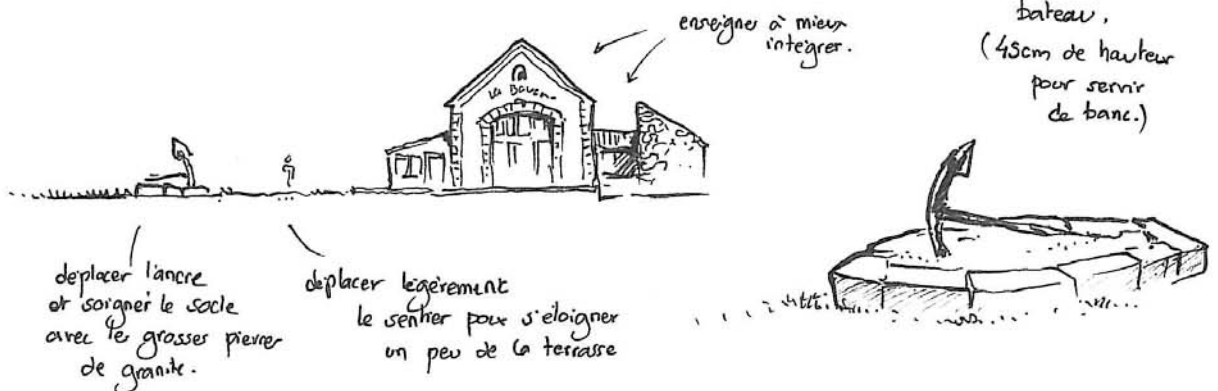 enseignes à mieux
intégrer.
bateau,
(45cm de hauteur
pour servir
de banc.)
La
déplacer l'ancre
et soigner le socle
avec les grosses pierres
de granite.
déplacer légèrement
le sentier pour s'éloigner
un peu de la terrasse